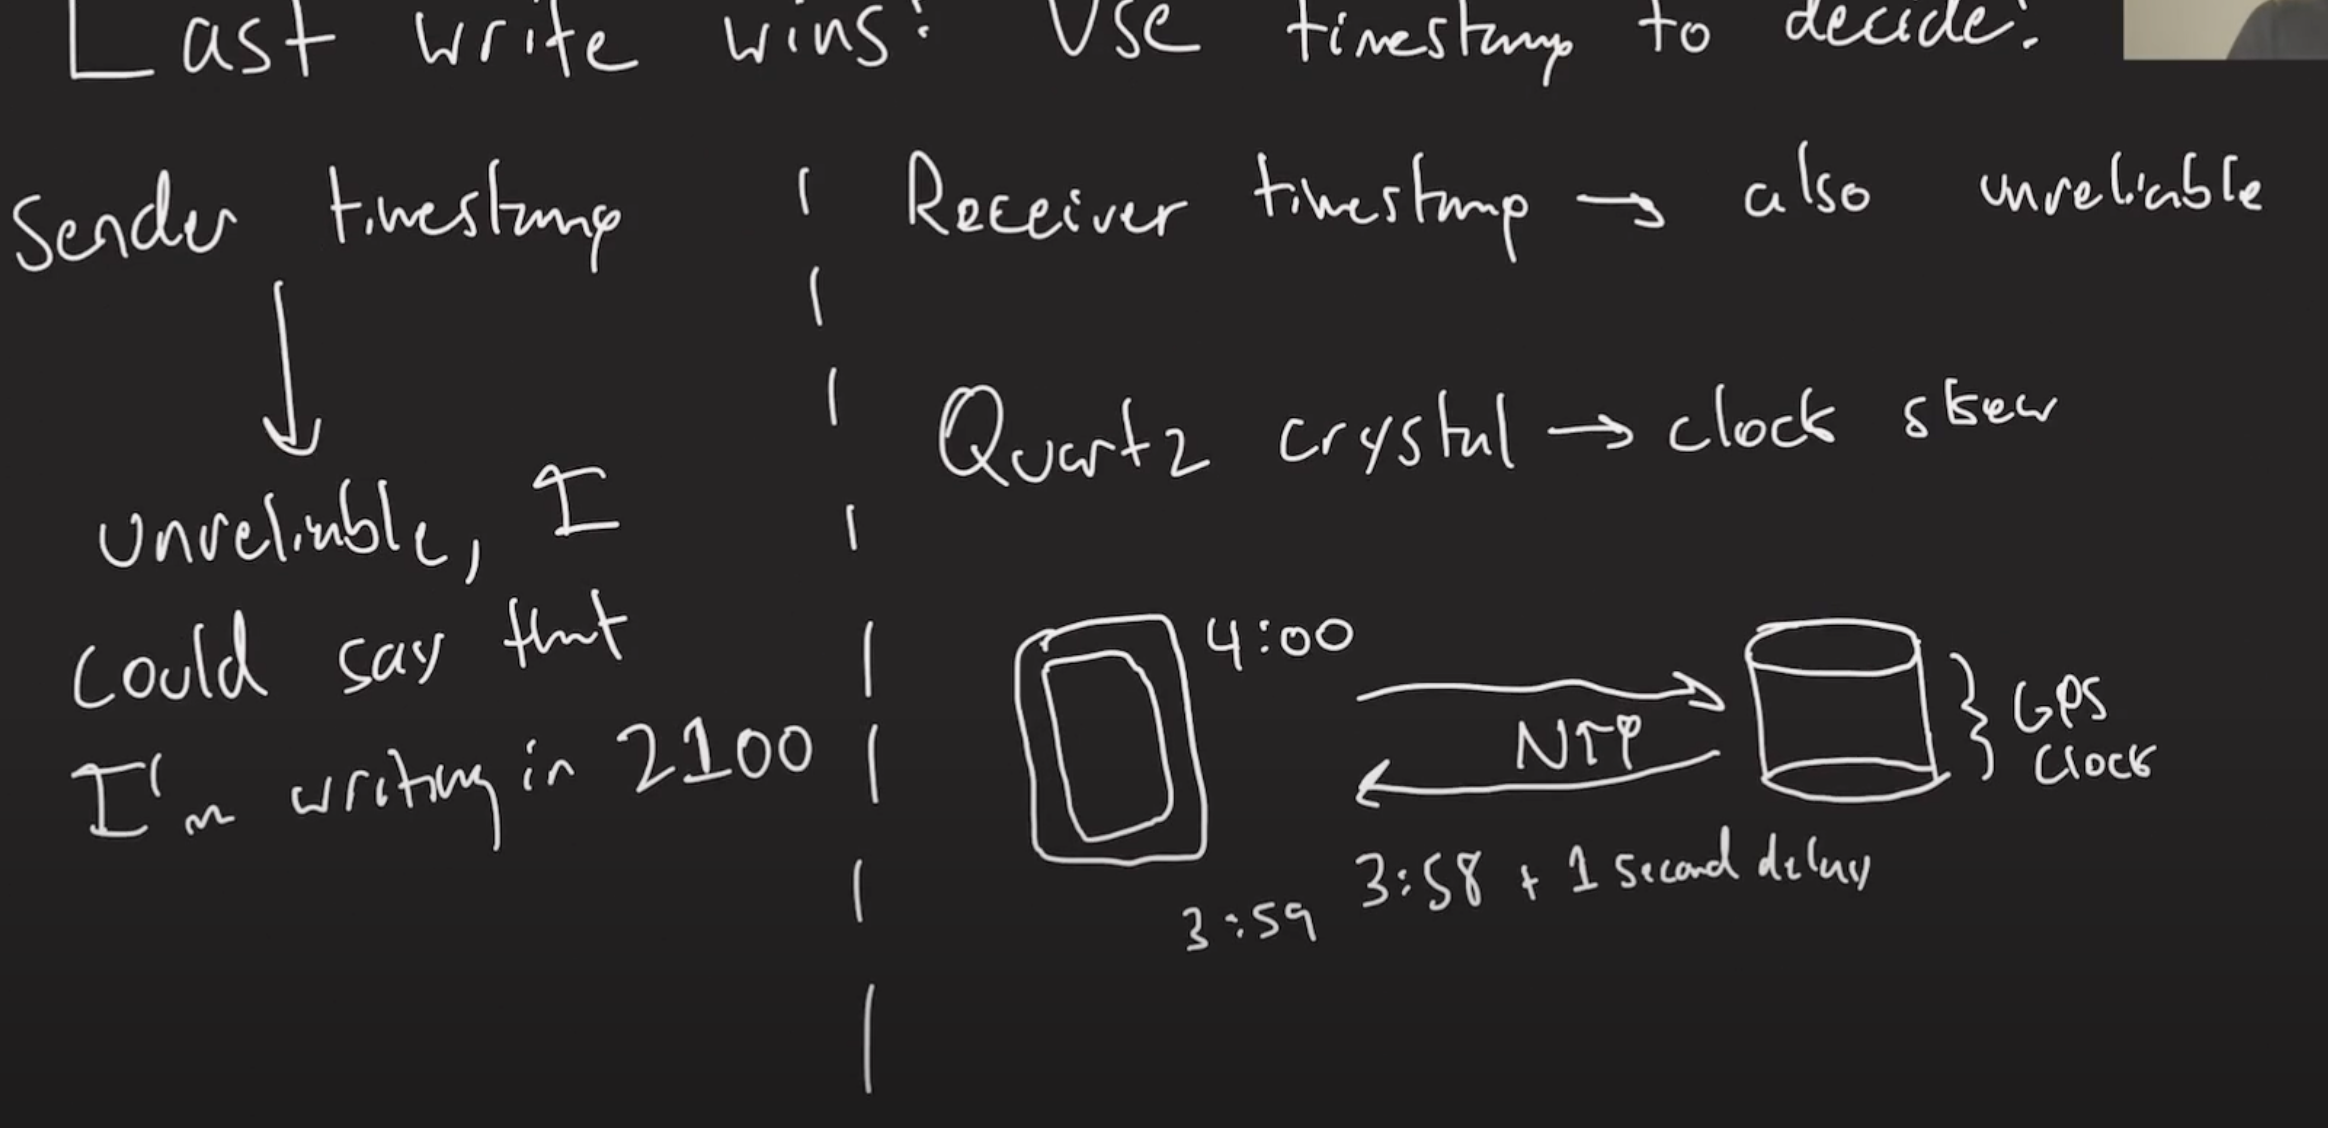 Last write wins: Use timestamp to decide:
Sender timestamp
unreliable, I
could say that
I'm writing in 2100
Receiver timestamp → also unreliable
Quartz crystal → clock skew
4:00
NTP
GPS
clock
3:58 + 1 second delay
3:59